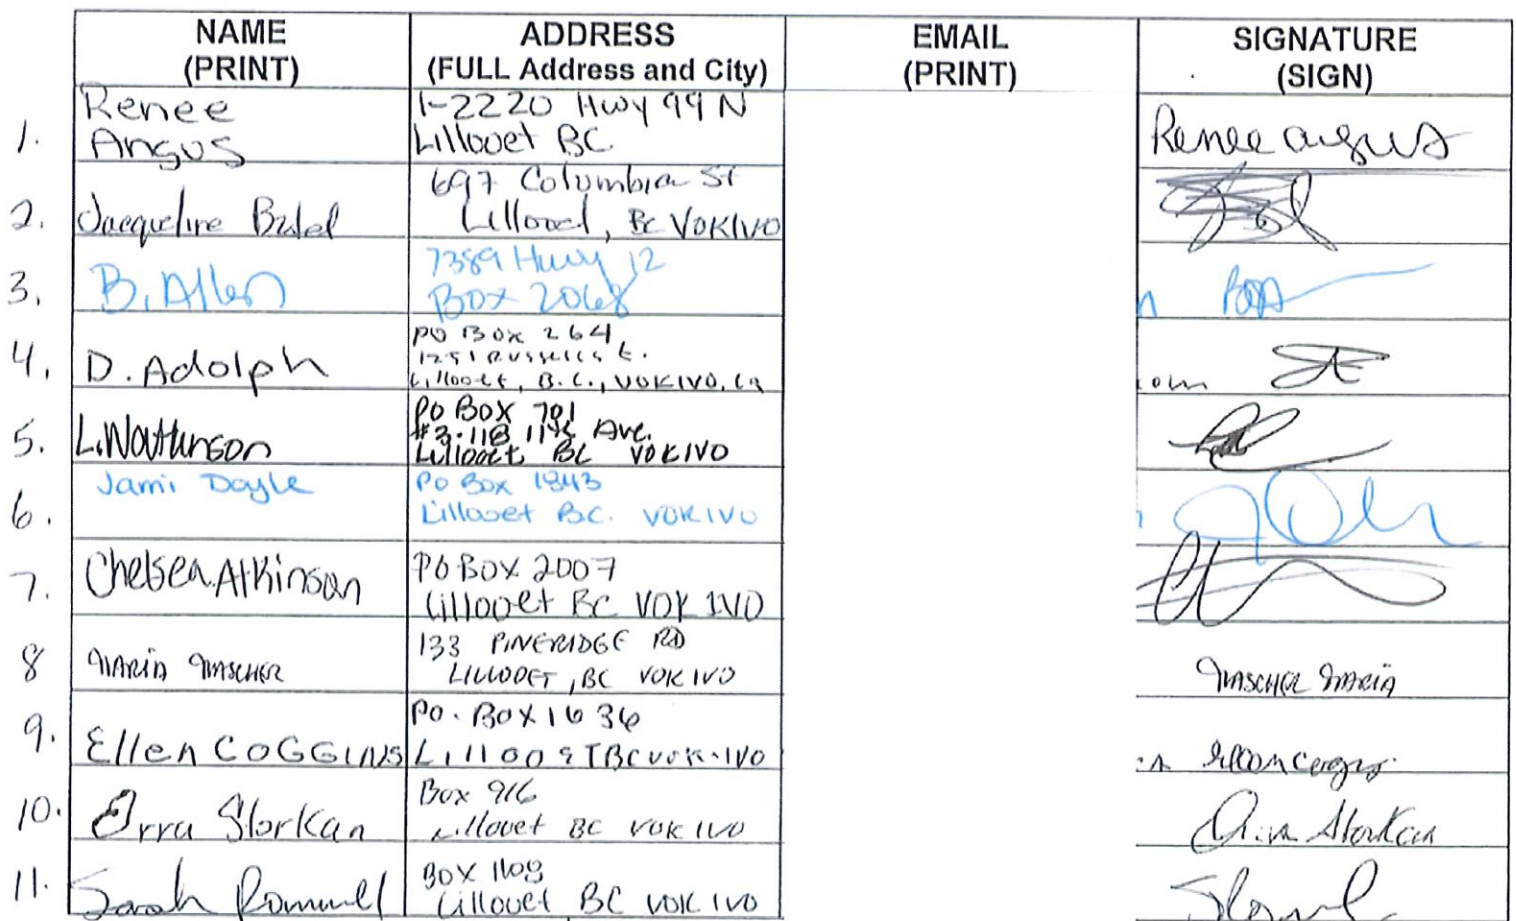 NAME (PRINT) ADDRESS (FULL Address and City) EMAIL (PRINT) SIGNATURE (SIGN)
1. Renee Angus 1-2220 Hwy 99 N Lillooet BC Renee Angus
2. Jacqueline 697 Columbia St Lillooet, BC V0K1V0
3. B. Allen 7389 Hwy 12 Box 2068
4. D. Adolph PO Box 264 1251 Russell St. Lillooet, B.C., V0K1V0, Ca om
5. L. Watkinson PO Box 701 #3-118 11th Ave. Lillooet BC V0K1V0
6. Jami Doyle PO Box 1843 Lillooet BC. V0K1V0
7. Chelsea Atkinson PO Box 2007 Lillooet BC V0K 1V0
8 MARIA MASCHER 133 PINERIDGE RD LILLOOET, BC V0K 1V0 MASCHER MARIA
9. Ellen COGGINS PO. Box 1636 Lillooet BC V0K-1V0 Ellen Coggins
10. Storkan Box 916 Lillooet BC V0K 1V0 Storkan
11. Sarah Rommel Box 1108 Lillooet BC V0K 1V0